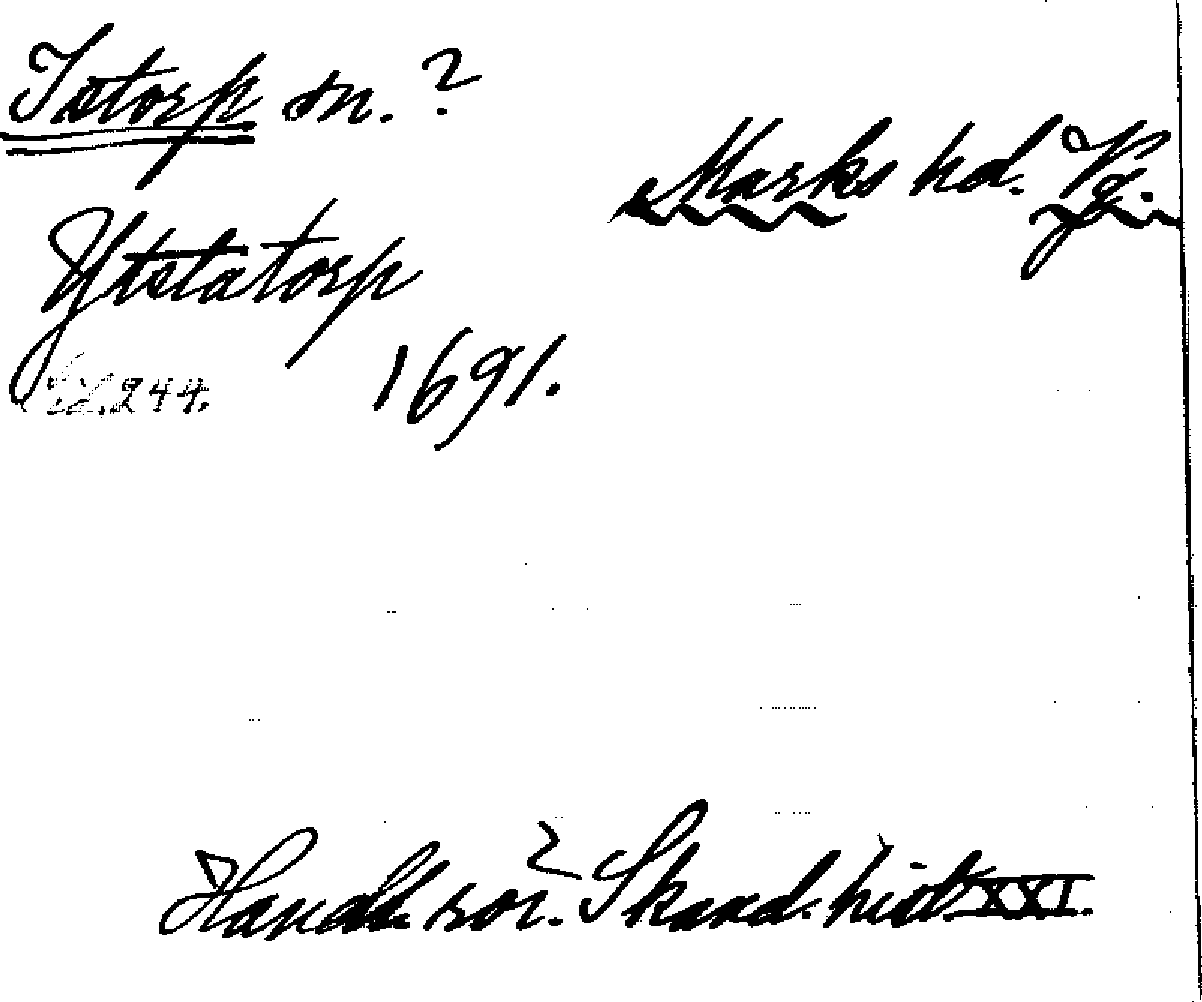 Istorp sn. ?
Marks hd. Vg.
Ytstatorp
1691.
244.
Handl. rör. Skand. hist. XXI.